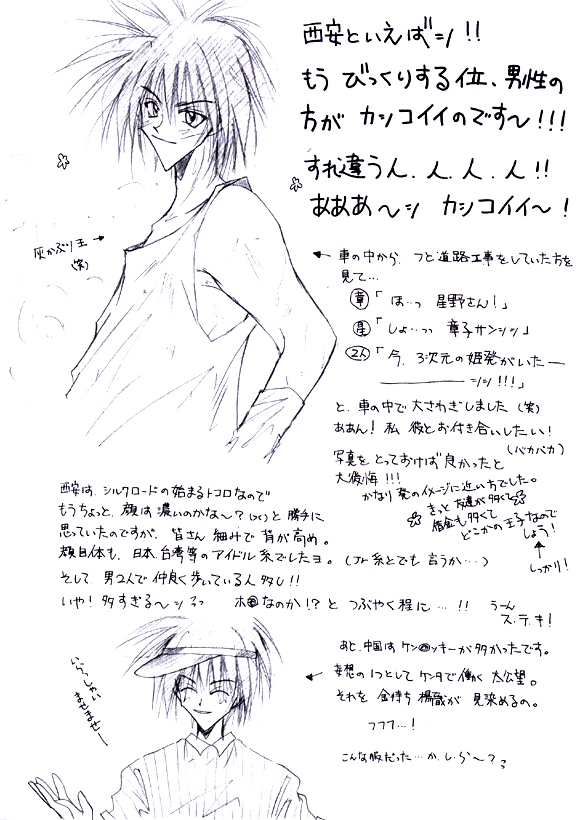 西安といえばッ!!
もう びっくりする位、男性の
方が カッコイイのです～!!!
すれ違う人、人、人、人!!
あああ～ッ カッコイイ～!
灰かぶり王
(笑)
車の中から、フと道路工事をしていた方を
見て…
章「ほ…っ 星野さん!」
星「しょ…っっ 章子サンッッ」
2人「今、3次元の姫発がいた―
―――ッッ!!!」
と、車の中で大さわぎしました(笑)
ああん! 私 彼とお付き合いしたい!
(バカバカ)
写真を とっておけば良かったと
大後悔!!!
かなり 発のイメージに近い方でした。
きっと 友達が多くて
借金も多くて
どこかの王子なので
しょう!
しっかり!
西安は、シルクロードの始まるトコロなので
もうちょっと、顔は濃いのかな～? と勝手に
思っていたのですが、皆さん 細みで 背が高め。
顔自体も、日本、台湾等のアイドル系でしたヨ。(Jr.系とでも 言うか…)
そして 男2人で 仲良く歩いている人 多し!!
いや! 多すぎる～ッ ホ●なのか!? と つぶやく程に…!! うーん
ス・テ・キ!
いらっしゃい
ませませー
あと、中国は ケン●ッキーが多かったです。
妄想の1つとして ケンタで働く 太公望。
それを 金持ち 楊戩が 見染めるの。
フフフ…!
こんな服だった…か、し、ら～?